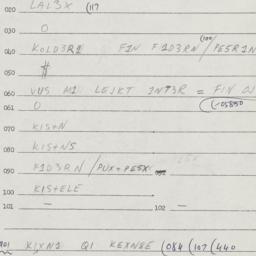 020 LAL3X (117
030 O
040 KOLD3R1 FIN F1D3RN (100) / PE5R1N
050 #
060 VUS M1 LEJKT 1NT3R = FIN DJ
061 O (-05850
070 KIS+N
080 KIS+NS
090 F1D3RN / PUX+PE5X
100 KIS+ELE
101 — 102 —
401 KIXN1 Q1 KEXN8E (084 (107 (440